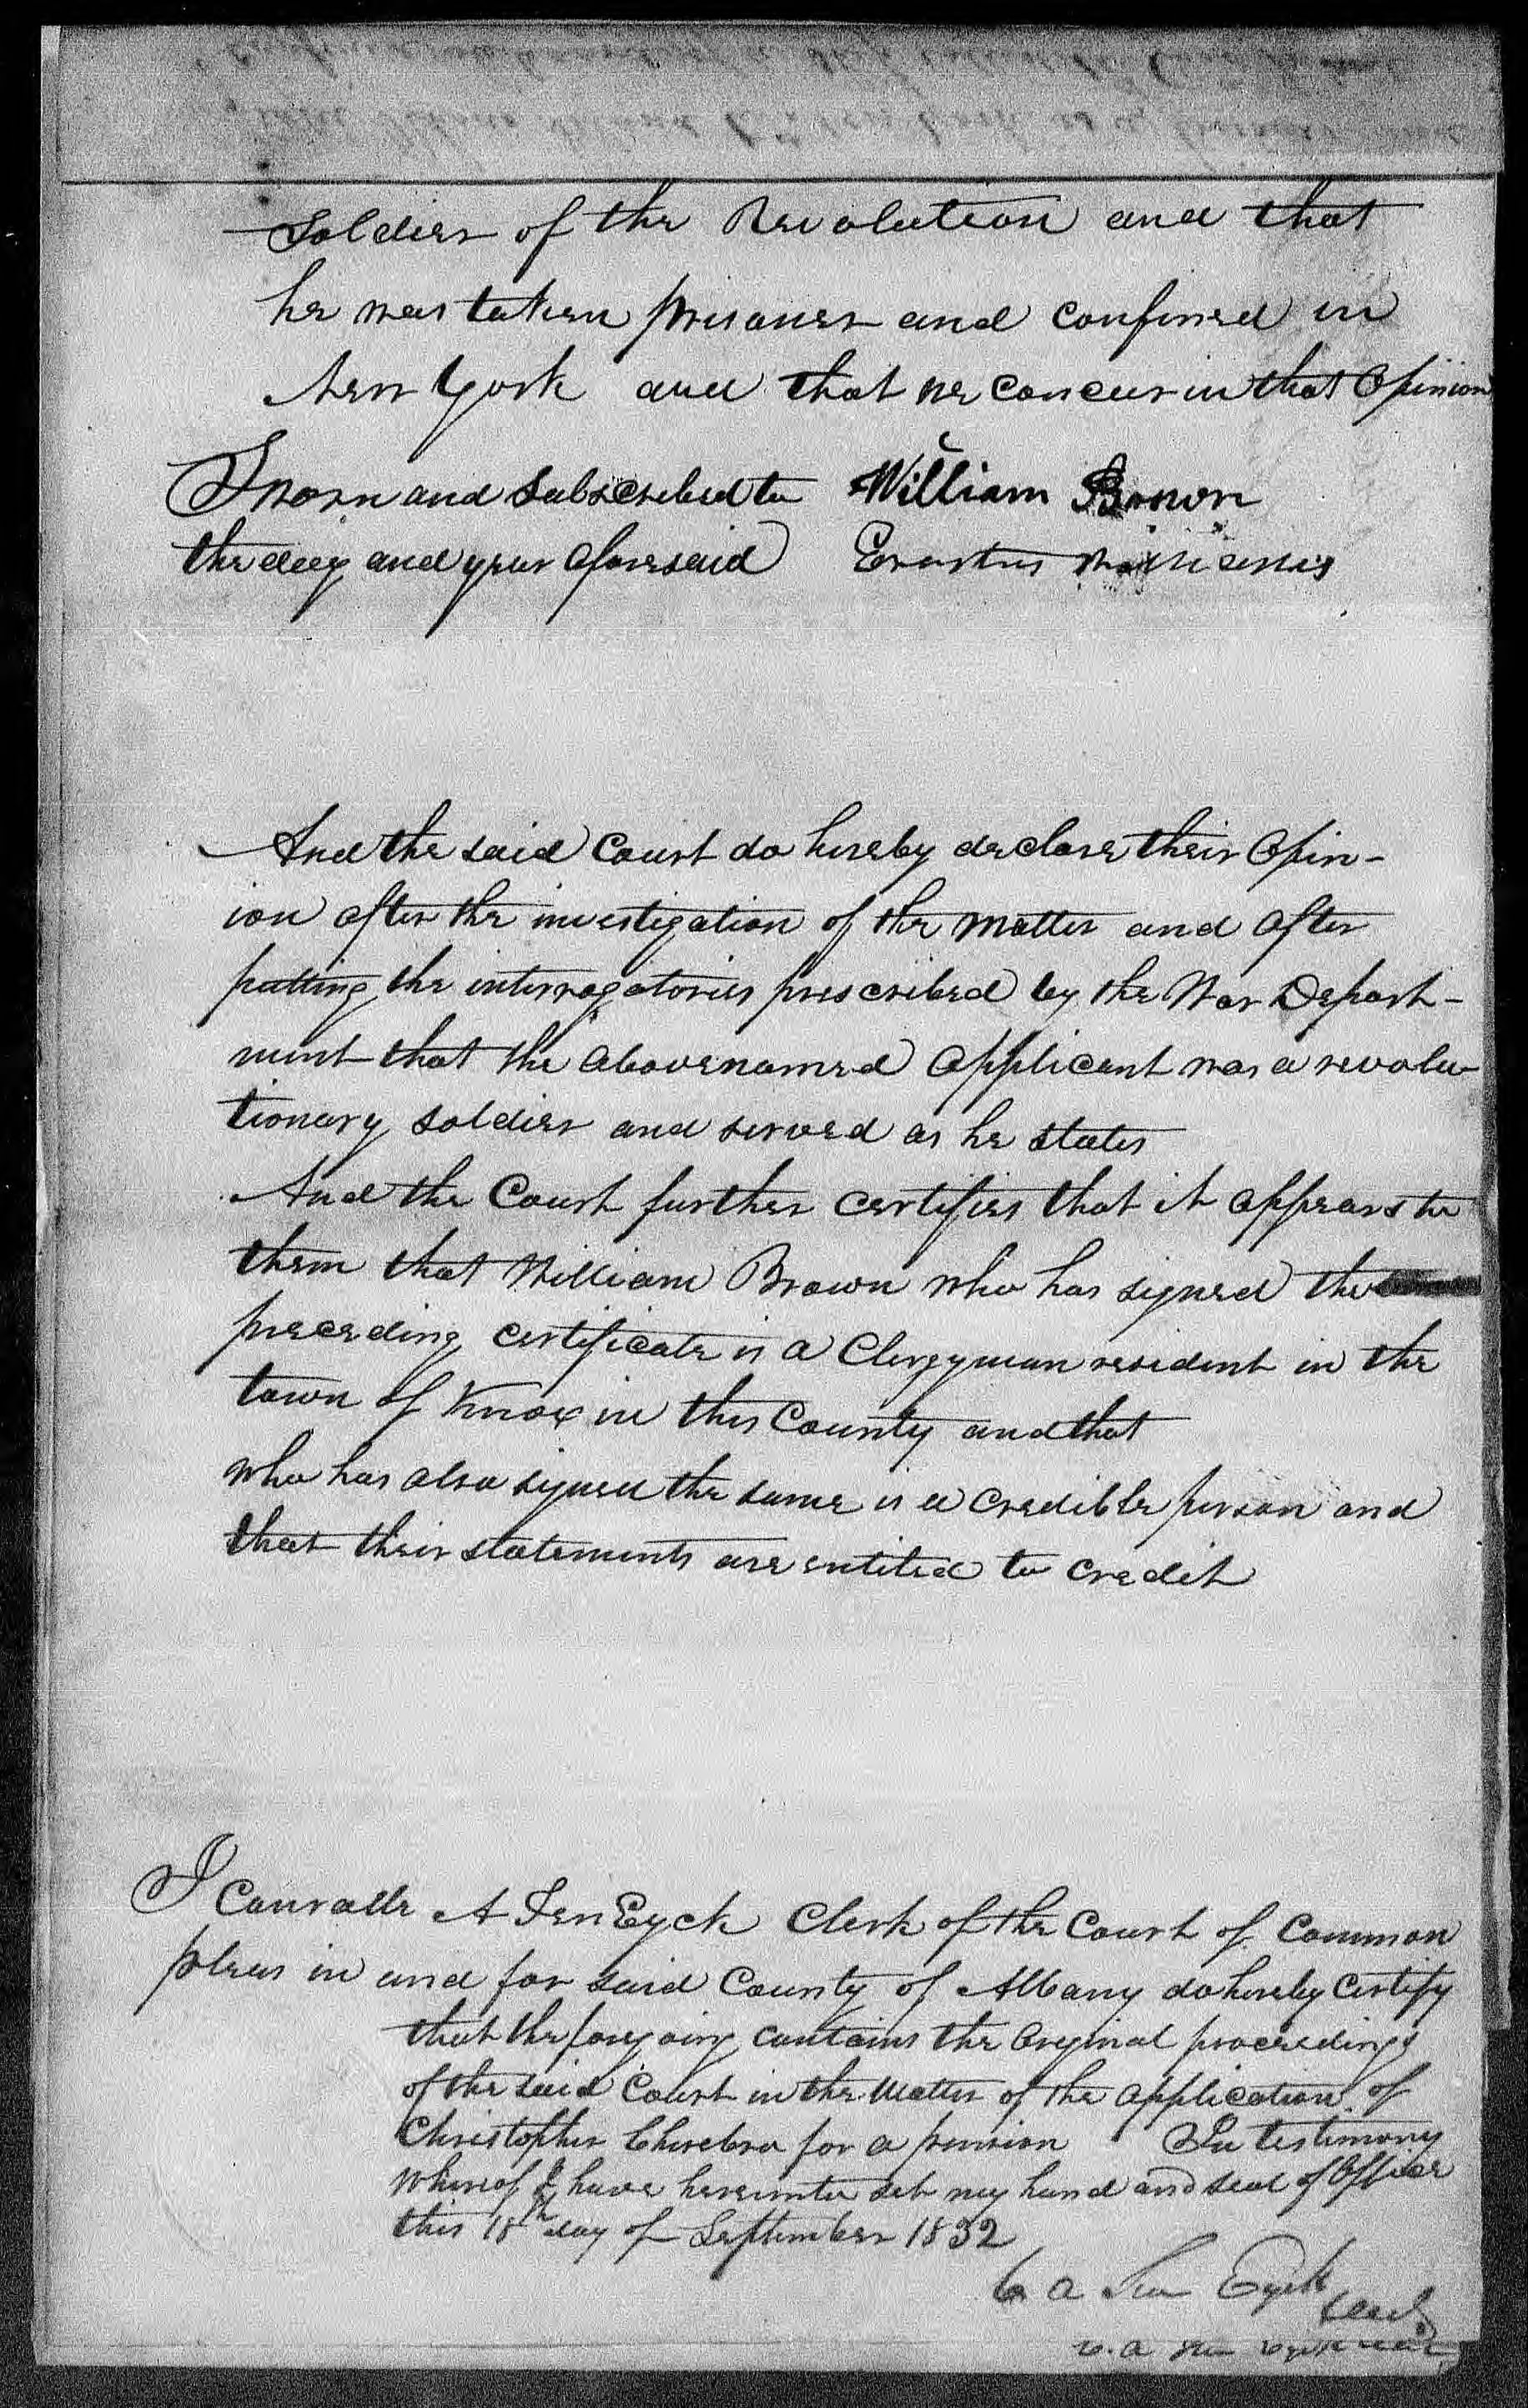 soldier of the Revolution and that
he was taken prisoner and confined in
New York and that we concur in that Opinion
Sworn and Subscribed to William Brown
the day and year aforesaid Erastus Williams
And the said Court do hereby declare their Opin-
ion after the investigation of the matter and after
putting the interrogatories prescribed by the War Depart-
ment that the abovenamed applicant was a revolu-
tionary soldier and served as he states
And the Court further certifies that it appears to
them that William Brown who has signed the
preceding certificate is a Clergyman resident in the
town of Knox in this County and that
who has also signed the same is a credible person and
that their statements are entitled to credit
I Conradt A Ten Eyck Clerk of the Court of Common
pleas in and for said County of Albany do hereby Certify
that the foregoing contains the Original proceedings
of the said Court in the Matter of the application of
Christopher for a pension In testimony
whereof I have hereunto set my hand and seal of Office
this 18th day of September 1832
C A Ten Eyck
Clerk
C. A Ten Eyck